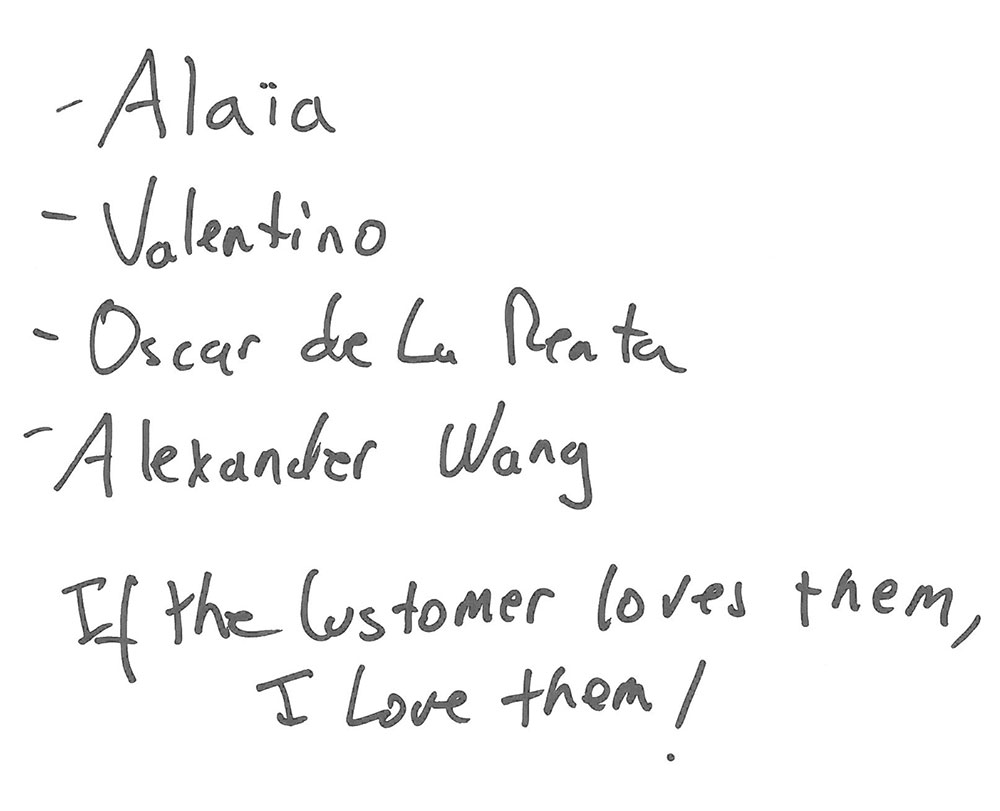 - Alaïa
- Valentino
- Oscar de La Renta
- Alexander Wang
If the Customer loves them,
I Love them!